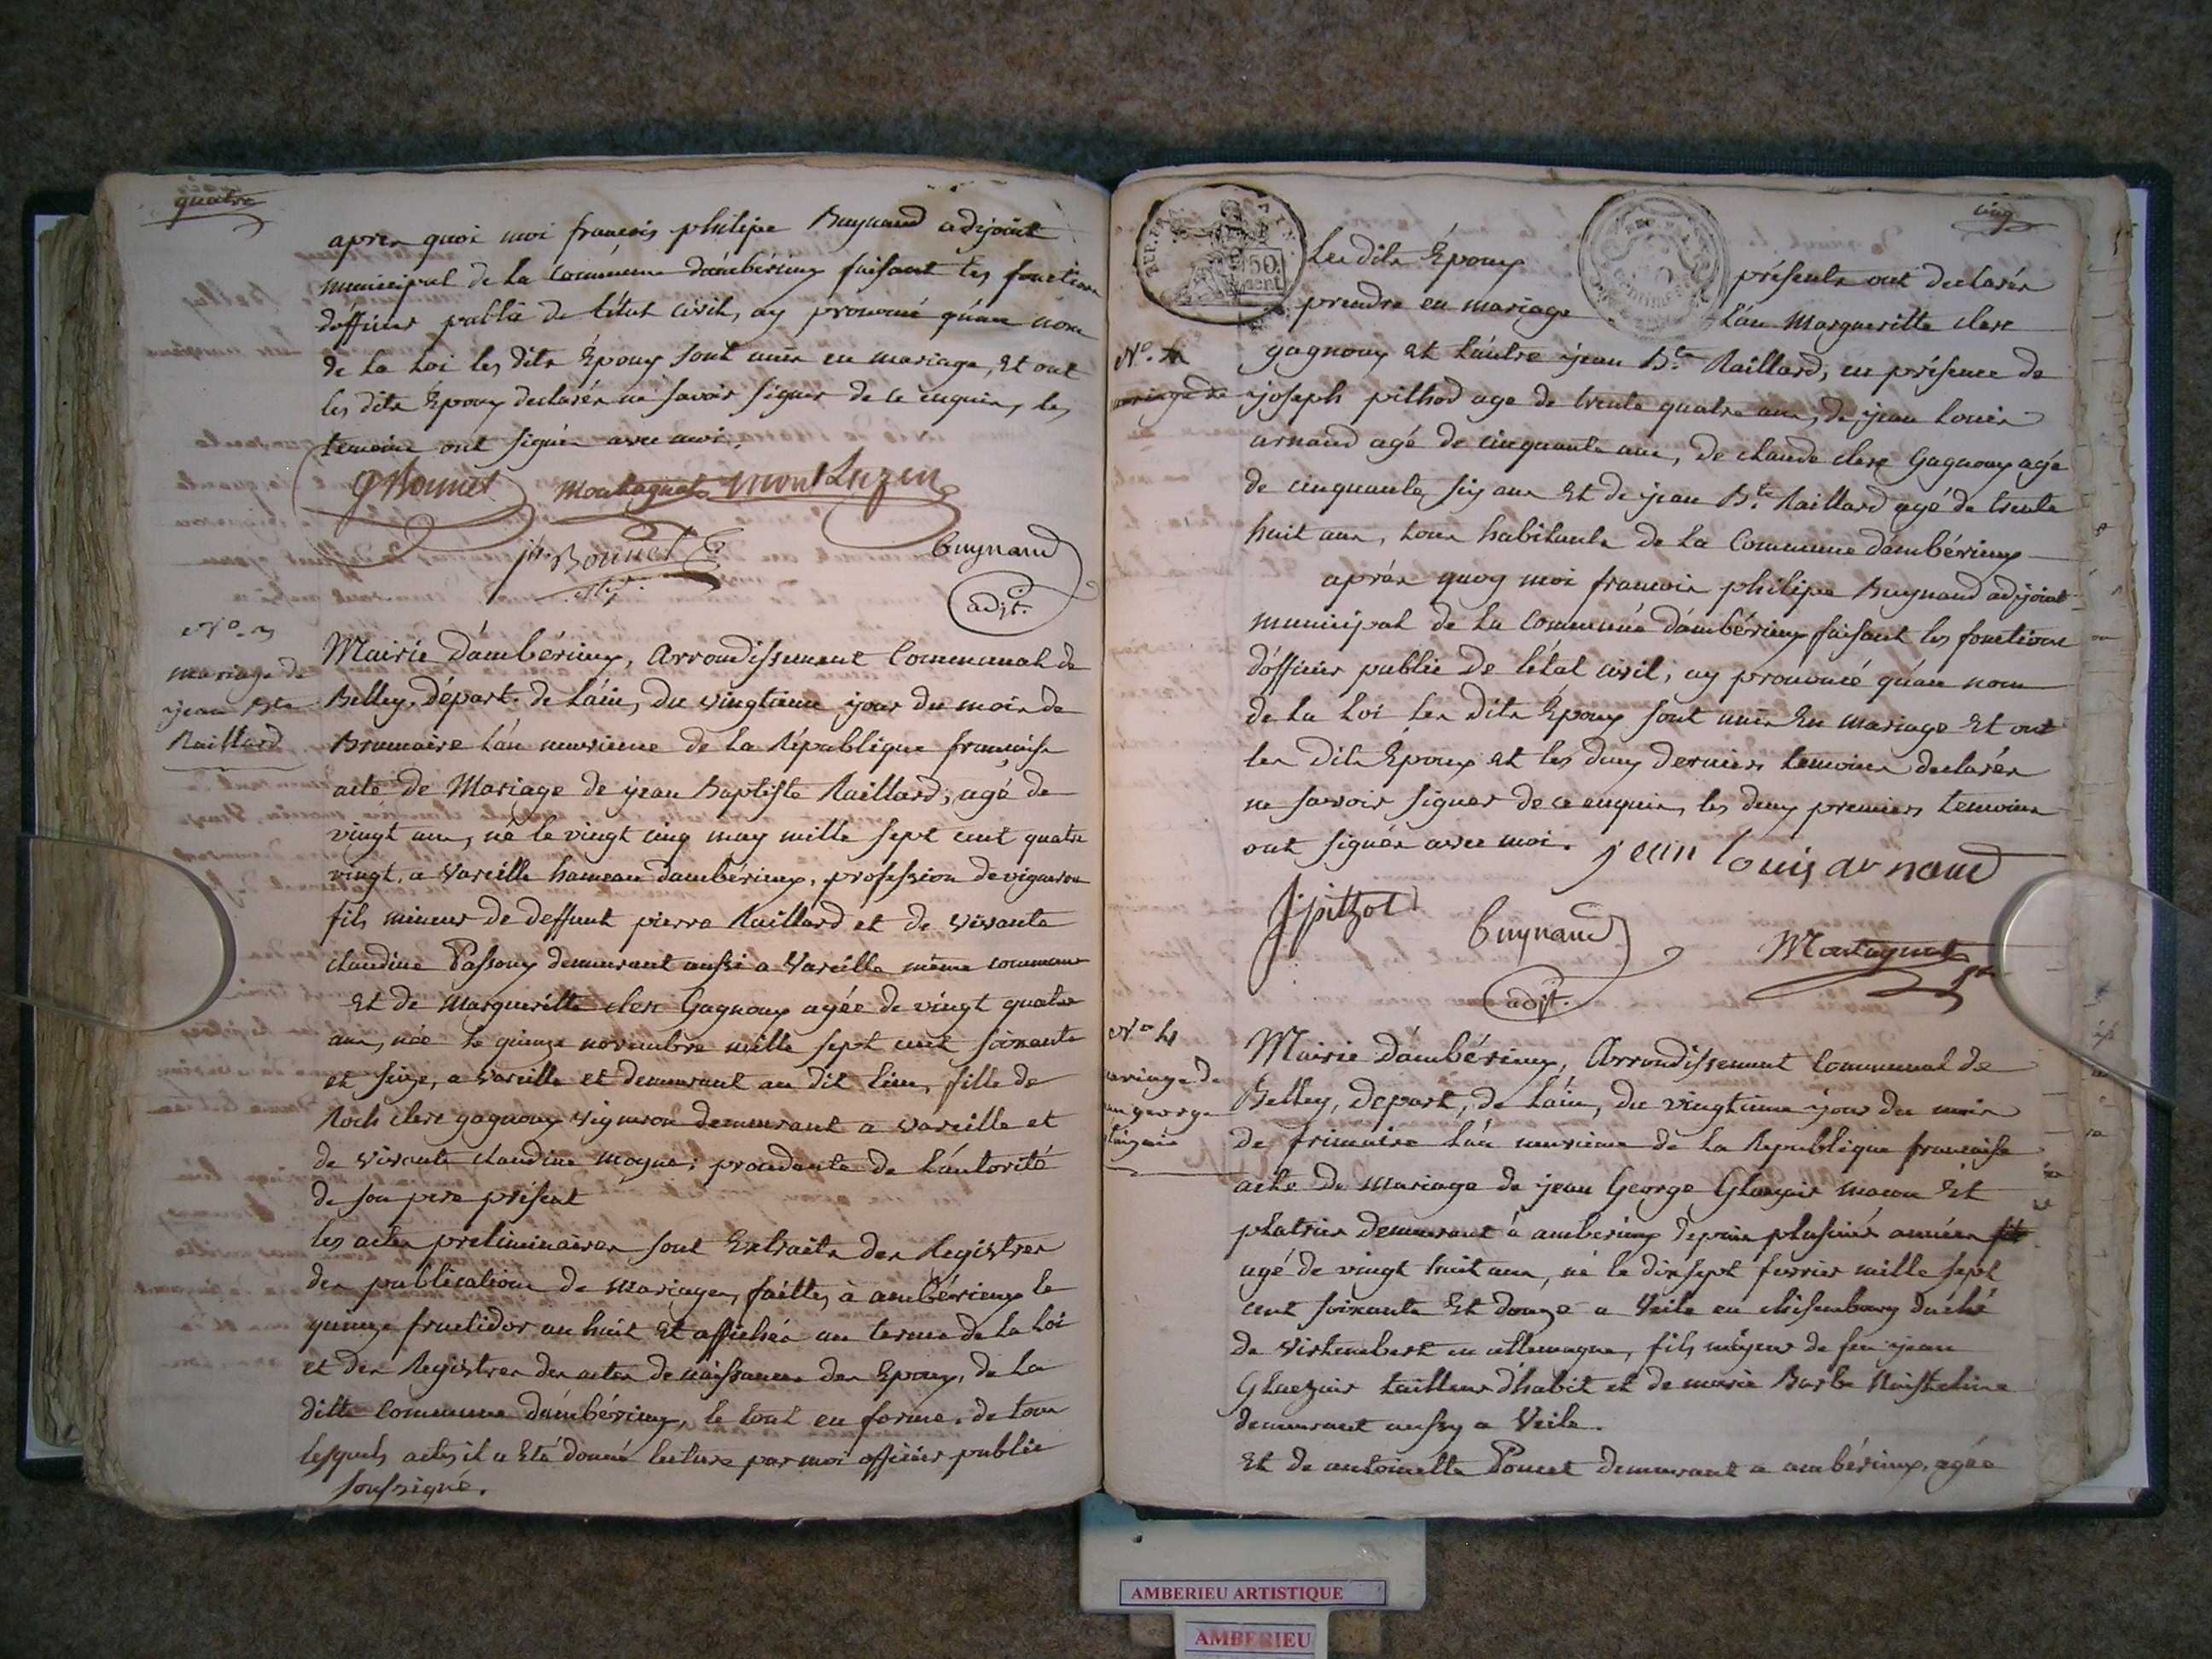 quatre
après quoi moi francois philipe Buynand adjoint
municipal de la Commune d'ambérieux faisant les fonctions
d'officier public de l'état civil, ay prononcé qu'au nom
de la Loi les dits Époux sont unis en mariage, Et ont
les dits Époux declarés ne savoir signer de ce enquis, les
temoins ont signés avec moi.
Montagnat montLuzin
Bonnet
Buynand
adjt.
N.o 3
mariage de
jean Bte
Raillard
Mairie d'ambérieux, Arrondissement Communal de
Belley, départ. de L'ain, du vingtieme jour du mois de
Brumaire l'an neuvieme de la République française
acte de Mariage de jean Baptiste Raillard, agé de
vingt ans, né le vingt cinq may mille sept cent quatre
vingt, a Vareille hameau d'ambérieux, profession de vigneron
fils mineur de deffunt pierre Raillard et de vivante
claudine Passoux demeurant aussi a Vareille même commune
Et de Margueritte clerc Gagnoux agée de vingt quatre
ans, née le quinze novembre mille sept cent soixante
et seize, a Vareille et demeurant au dit lieu, fille de
Roch clerc gagnoux vigneron demeurant a Vareille et
de vivante claudine moyne; procedante de L'autorité
de son pere présent
les actes preliminaires sont Extraits des Registres
des publications de mariages, faittes à ambérieux le
quinze fructidor an huit Et affichés au terme de la Loi
et des Registres des actes de naissances des Epoux, de la
ditte Commune d'ambérieux, le tout en forme. de tous
lesquels actes il a Eté donné lecture par moi officier public
soussigné.
cinq
Les dits Époux présents ont declarés
prendre en mariage L'un Margueritte clerc
gagnoux Et L'autre jean Bte Raillard, en présence de
joseph pithod age de trente quatre ans, de jean Louis
arnaud agé de cinquante ans, de claude clerc Gagnoux agé
de cinquante six ans Et de jean Bte Raillard agé de trente
huit ans, tous habitants de la Commune d'ambérieux
après quoy moi francois philipe Buynand adjoint
municipal de la Commune d'ambérieux faisant les fonctions
d'officier public de l'état civil, ay prononcé qu'au nom
de la Loi les dits Époux sont unis En mariage Et ont
les dits Époux et les deux derniers temoins declarés
ne savoir signer de ce enquis, les deux premiers temoins
ont signés avec moi.
jean louis arnaud
Buynand
adjt.
Montagnat
N.o 4
Mairie d'ambérieux, Arrondissement Communal de
Belley, depart, de L'ain, du vingtieme jour du mois
de frimaire L'an neuvieme de la Republique francaise
acte de mariage de jean George macon Et
platrier demeurant à amberieux depuis plusieurs années
agé de vingt huit ans, né le dixsept fevrier mille sept
cent soixante Et douze a Veile en duché
de Virtembert en allemagne, fils majeur de feu jean
tailleur d'habit et de marie Barbe
demeurant aussy a Veile.
Et de antoinette Poncet demeurant a ambérieux, agée
AMBERIEU ARTISTIQUE
AMBERIEU